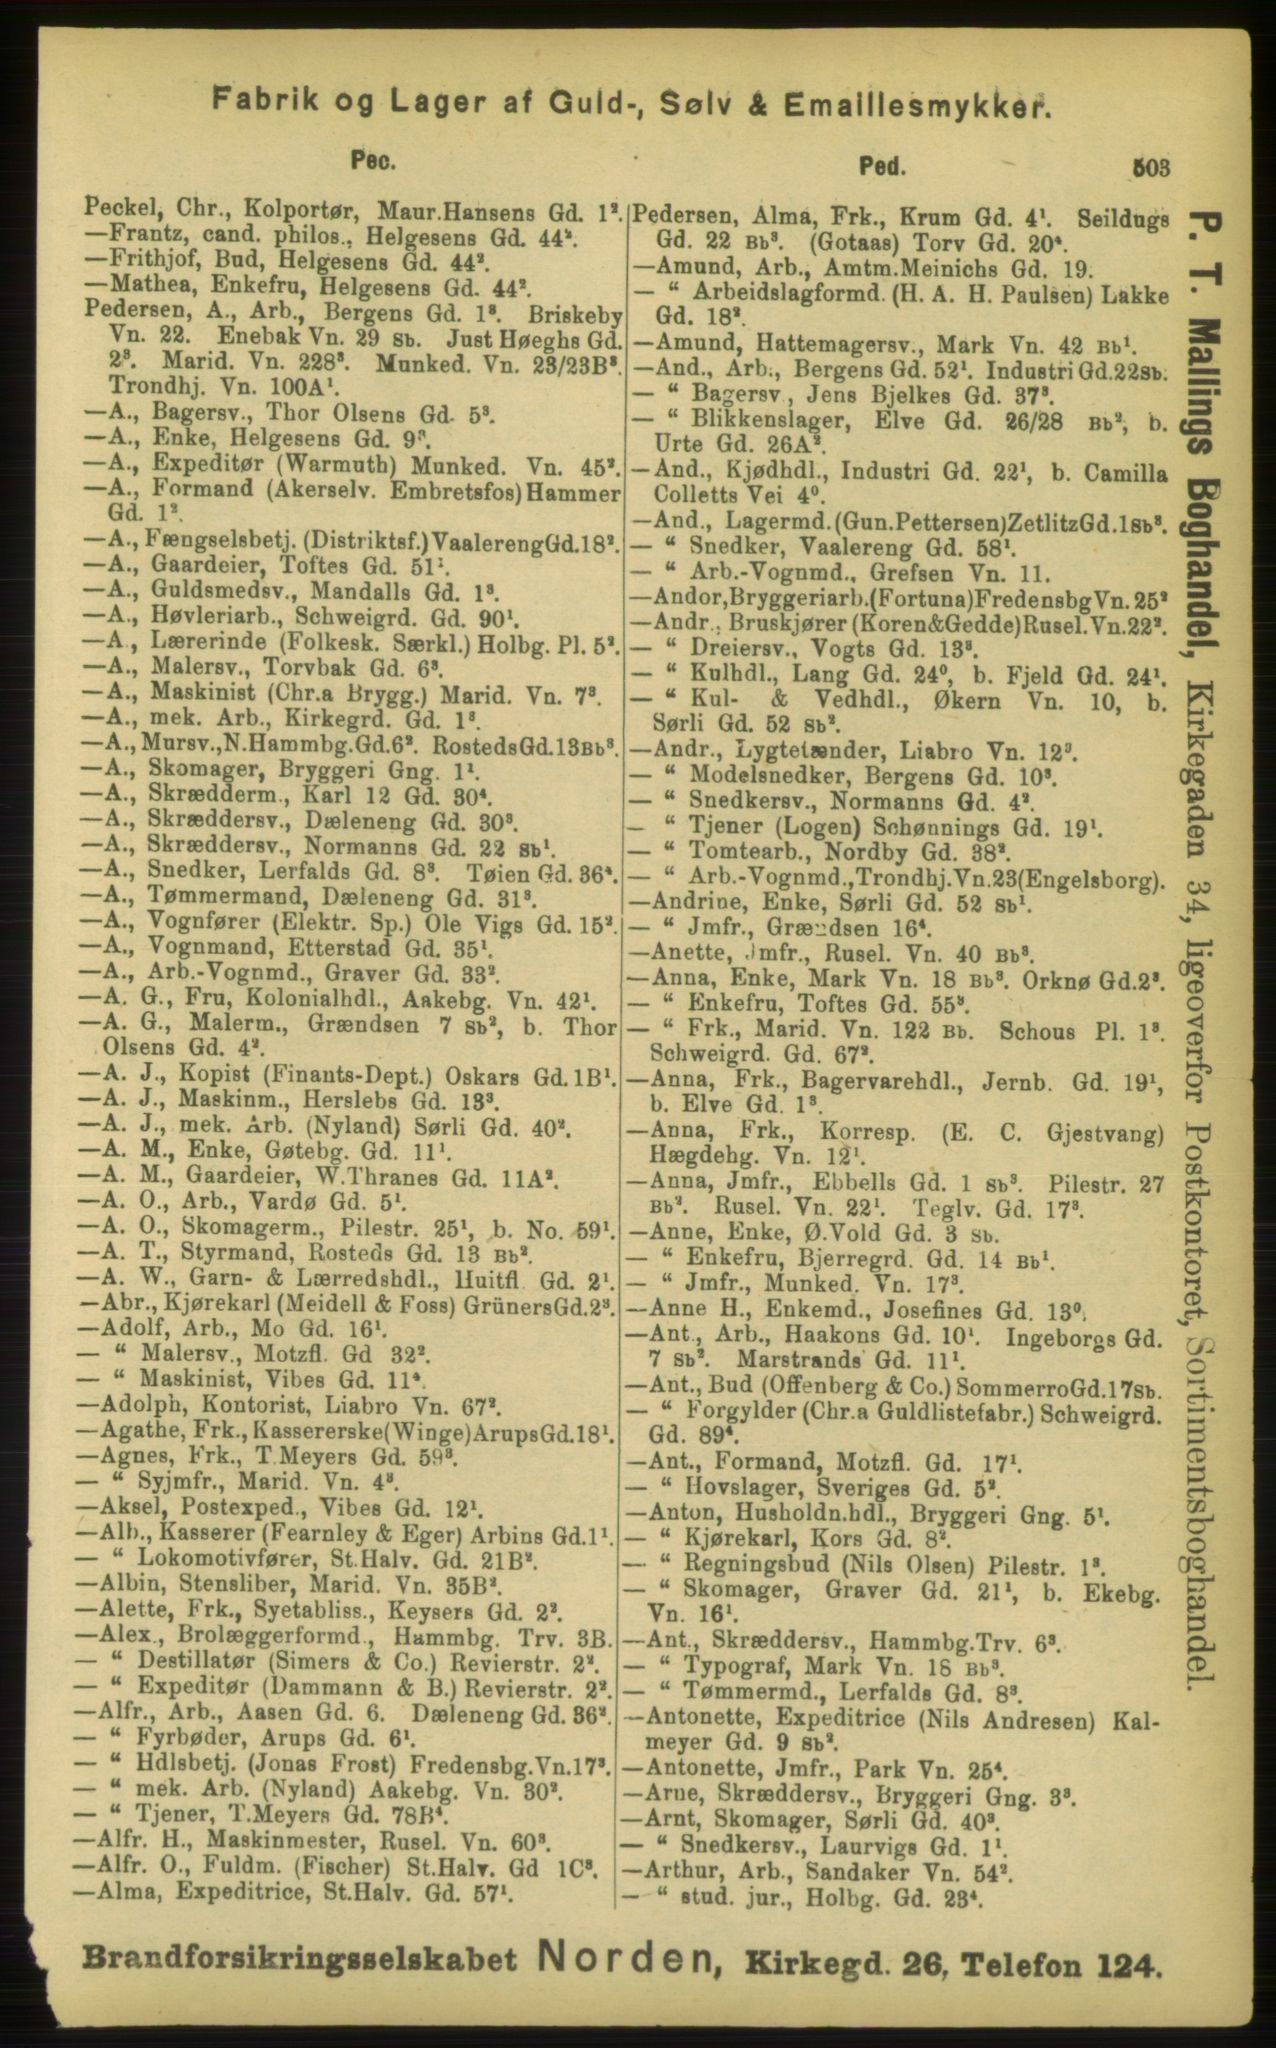 Fabrik og Lager af Guld-, Sølv & Emaillesmykker.
Pec.
Ped.
503
Peckel, Chr., Kolportør, Maur.Hansens Gd. 1².
—Frantz, cand. philos., Helgesens Gd. 44².
—Frithjof, Bud, Helgesens Gd. 44².
—Mathea, Enkefru, Helgesens Gd. 44².
Pedersen, A., Arb., Bergens Gd. 1³. Briskeby
Vn. 22. Enebak Vn. 29 Sb. Just Høeghs Gd.
2³. Marid. Vn. 228³. Munked. Vn. 23/23B³.
Trondhj. Vn. 100A¹.
—A., Bagersv., Thor Olsens Gd. 5³.
—A., Enke, Helgesens Gd. 9³.
—A., Expeditør (Warmuth) Munked. Vn. 45².
—A., Formand (Akerselv. Embretsfos) Hammer
Gd. 1².
—A., Fængselsbetj. (Distriktsf.) VaalerengGd.18².
—A., Gaardeier, Toftes Gd. 51¹.
—A., Guldsmedsv., Mandalls Gd. 1³.
—A., Høvleriarb., Schweigrd. Gd. 90¹.
—A., Lærerinde (Folkesk. Særkl.) Holbg. Pl. 5².
—A., Malersv., Torvbak Gd. 6³.
—A., Maskinist (Chr.a Brygg.) Marid. Vn. 7³.
—A., mek. Arb., Kirkegrd. Gd. 1³.
—A., Mursv., N.Hammbg.Gd.6². RostedsGd.13Bb³.
—A., Skomager, Bryggeri Gng. 1¹.
—A., Skrædderm., Karl 12 Gd. 30⁴.
—A., Skræddersv., Dæleneng Gd. 30³.
—A., Skræddersv., Normanns Gd. 22 Sb¹.
—A., Snedker, Lerfalds Gd. 8³. Tøien Gd. 36⁴.
—A., Tømmermand, Dæleneng Gd. 31³.
—A., Vognfører (Elektr. Sp.) Ole Vigs Gd. 15².
—A., Vognmand, Etterstad Gd. 35¹.
—A., Arb.-Vognmd., Graver Gd. 33².
—A. G., Fru, Kolonialhdl., Aakebg. Vn. 42¹.
—A. G., Malerm., Grændsen 7 Sb², b. Thor
Olsens Gd. 4².
—A. J., Kopist (Finants-Dept.) Oskars Gd. 1B¹.
—A. J., Maskinm., Herslebs Gd. 13³.
—A. J., mek. Arb. (Nyland) Sørli Gd. 40².
—A. M., Enke, Gøtebg. Gd. 11¹.
—A. M., Gaardeier, W.Thranes Gd. 11A².
—A. O., Arb., Vardø Gd. 5¹.
—A. O., Skomagerm., Pilestr. 25¹, b. No. 59¹.
—A. T., Styrmand, Rosteds Gd. 13 Bb².
—A. W., Garn- & Lærredshdl., Huitfl. Gd. 2¹.
—Abr., Kjørekarl (Meidell & Foss) GrünersGd.2³.
—Adolf, Arb., Mo Gd. 16¹.
— “ Malersv., Motzfl. Gd 32².
— “ Maskinist, Vibes Gd. 11⁴.
—Adolph, Kontorist, Liabro Vn. 67².
—Agathe, Frk., Kassererske(Winge)ArupsGd.18¹.
—Agnes, Frk., T.Meyers Gd. 59³.
— “ Syjmfr., Marid. Vn. 4³.
—Aksel, Postexped., Vibes Gd. 12¹.
—Alb., Kasserer (Fearnley & Eger) Arbins Gd.1¹.
— “ Lokomotivfører, St.Halv. Gd. 21B².
—Albin, Stensliber, Marid. Vn. 35B².
—Alette, Frk., Syetabliss., Keysers Gd. 2².
—Alex., Brolæggerformd., Hammbg. Trv. 3B.
— “ Destillatør (Simers & Co.) Revierstr. 2².
— “ Expeditør (Dammann & B.) Revierstr. 2².
—Alfr., Arb., Aasen Gd. 6. Dæleneng Gd. 36².
— “ Fyrbøder, Arups Gd. 6¹.
— “ Hdlsbetj. (Jonas Frost) Fredensbg.Vn.17³.
— “ mek. Arb. (Nyland) Aakebg. Vn. 30².
— “ Tjener, T.Meyers Gd. 78B⁴.
—Alfr. H., Maskinmester, Rusel. Vn. 60³.
—Alfr. O., Fuldm. (Fischer) St.Halv. Gd 1C³.
—Alma, Expeditrice, St.Halv. Gd. 57¹.
Pedersen, Alma, Frk., Krum Gd. 4¹. Seildugs
Gd. 22 Bb³. (Gotaas) Torv Gd. 20⁴.
—Amund, Arb., Amtm.Meinichs Gd. 19.
— “ Arbeidslagformd. (H. A. H. Paulsen) Lakke
Gd. 18².
—Amund, Hattemagersv., Mark Vn. 42 Bb¹.
—And., Arb., Bergens Gd. 52¹. Industri Gd.22Sb.
— “ Bagersv., Jens Bjelkes Gd. 37³.
— “ Blikkenslager, Elve Gd. 26/28 Bb², b.
Urte Gd. 26A².
—And., Kjødhdl., Industri Gd. 22¹, b. Camilla
Colletts Vei 4⁰.
—And., Lagermd.(Gun.Pettersen)ZetlitzGd.1Sb³.
— “ Snedker, Vaalereng Gd. 58¹.
— “ Arb.-Vognmd., Grefsen Vn. 11.
—Andor,Bryggeriarb.(Fortuna)FredensbgVn.25²
—Andr., Bruskjører (Koren&Gedde)Rusel.Vn.22².
— “ Dreiersv., Vogts Gd. 13³.
— “ Kulhdl., Lang Gd. 24⁰, b. Fjeld Gd. 24¹.
— “ Kul- & Vedhdl., Økern Vn. 10, b.
Sørli Gd. 52 Sb².
—Andr., Lygtetænder, Liabro Vn. 12³.
— “ Modelsnedker, Bergens Gd. 10³.
— “ Snedkersv., Normanns Gd. 4².
— “ Tjener (Logen) Schønnings Gd. 19¹.
— “ Tomtearb., Nordby Gd. 38².
— “ Arb.-Vognmd.,Trondhj.Vn.23(Engelsborg).
—Andrine, Enke, Sørli Gd. 52 Sb¹.
— “ Jmfr., Grændsen 16⁴.
—Anette, Jmfr., Rusel. Vn. 40 Bb³.
—Anna, Enke, Mark Vn. 18 Bb³. Orknø Gd.2³.
— “ Enkefru, Toftes Gd. 55³.
— “ Frk., Marid. Vn. 122 Bb. Schous Pl. 1³.
Schweigrd. Gd. 67².
—Anna, Frk., Bagervarehdl., Jernb. Gd. 19¹,
b. Elve Gd. 1³.
—Anna, Frk., Korresp. (E. C. Gjestvang)
Hægdehg. Vn. 12¹.
—Anna, Jmfr., Ebbells Gd. 1 Sb³. Pilestr. 27
Bb². Rusel. Vn. 22¹. Teglv. Gd. 17³.
—Anne, Enke, Ø.Vold Gd. 3 Sb.
— “ Enkefru, Bjerregrd. Gd. 14 Bb¹.
— “ Jmfr., Munked. Vn. 17³.
—Anne H., Enkemd., Josefines Gd. 13⁰.
—Ant., Arb., Haakons Gd. 10¹. Ingeborgs Gd.
7 Sb². Marstrands Gd. 11¹.
—Ant., Bud (Offenberg & Co.) SommerroGd.17Sb.
— “ Forgylder (Chr.a Guldlistefabr.) Schweigrd.
Gd. 89⁴.
—Ant., Formand, Motzfl. Gd. 17¹.
— “ Hovslager, Sveriges Gd. 5².
—Anton, Husholdn.hdl., Bryggeri Gng. 5¹.
— “ Kjørekarl, Kors Gd. 8².
— “ Regningsbud (Nils Olsen) Pilestr. 1³.
— “ Skomager, Graver Gd. 21¹, b. Ekebg.
Vn. 16¹.
—Ant., Skræddersv., Hammbg.Trv. 6³.
— “ Typograf, Mark Vn. 18 Bb³.
— “ Tømmermd., Lerfalds Gd. 8³.
—Antonette, Expeditrice (Nils Andresen) Kal-
meyer Gd. 9 Sb².
—Antonette, Jmfr., Park Vn. 25⁴.
—Arne, Skræddersv., Bryggeri Gng. 3³.
—Arnt, Skomager, Sørli Gd. 40³.
— “ Snedkersv., Laurvigs Gd. 1¹.
—Arthur, Arb., Sandaker Vn. 54².
— “ stud. jur., Holbg. Gd. 23⁴.
P. T. Mallings Boghandel, Kirkegaden 34, ligeoverfor Postkontoret, Sortimentsboghandel.
Brandforsikringsselskabet Norden, Kirkegd. 26, Telefon 124.